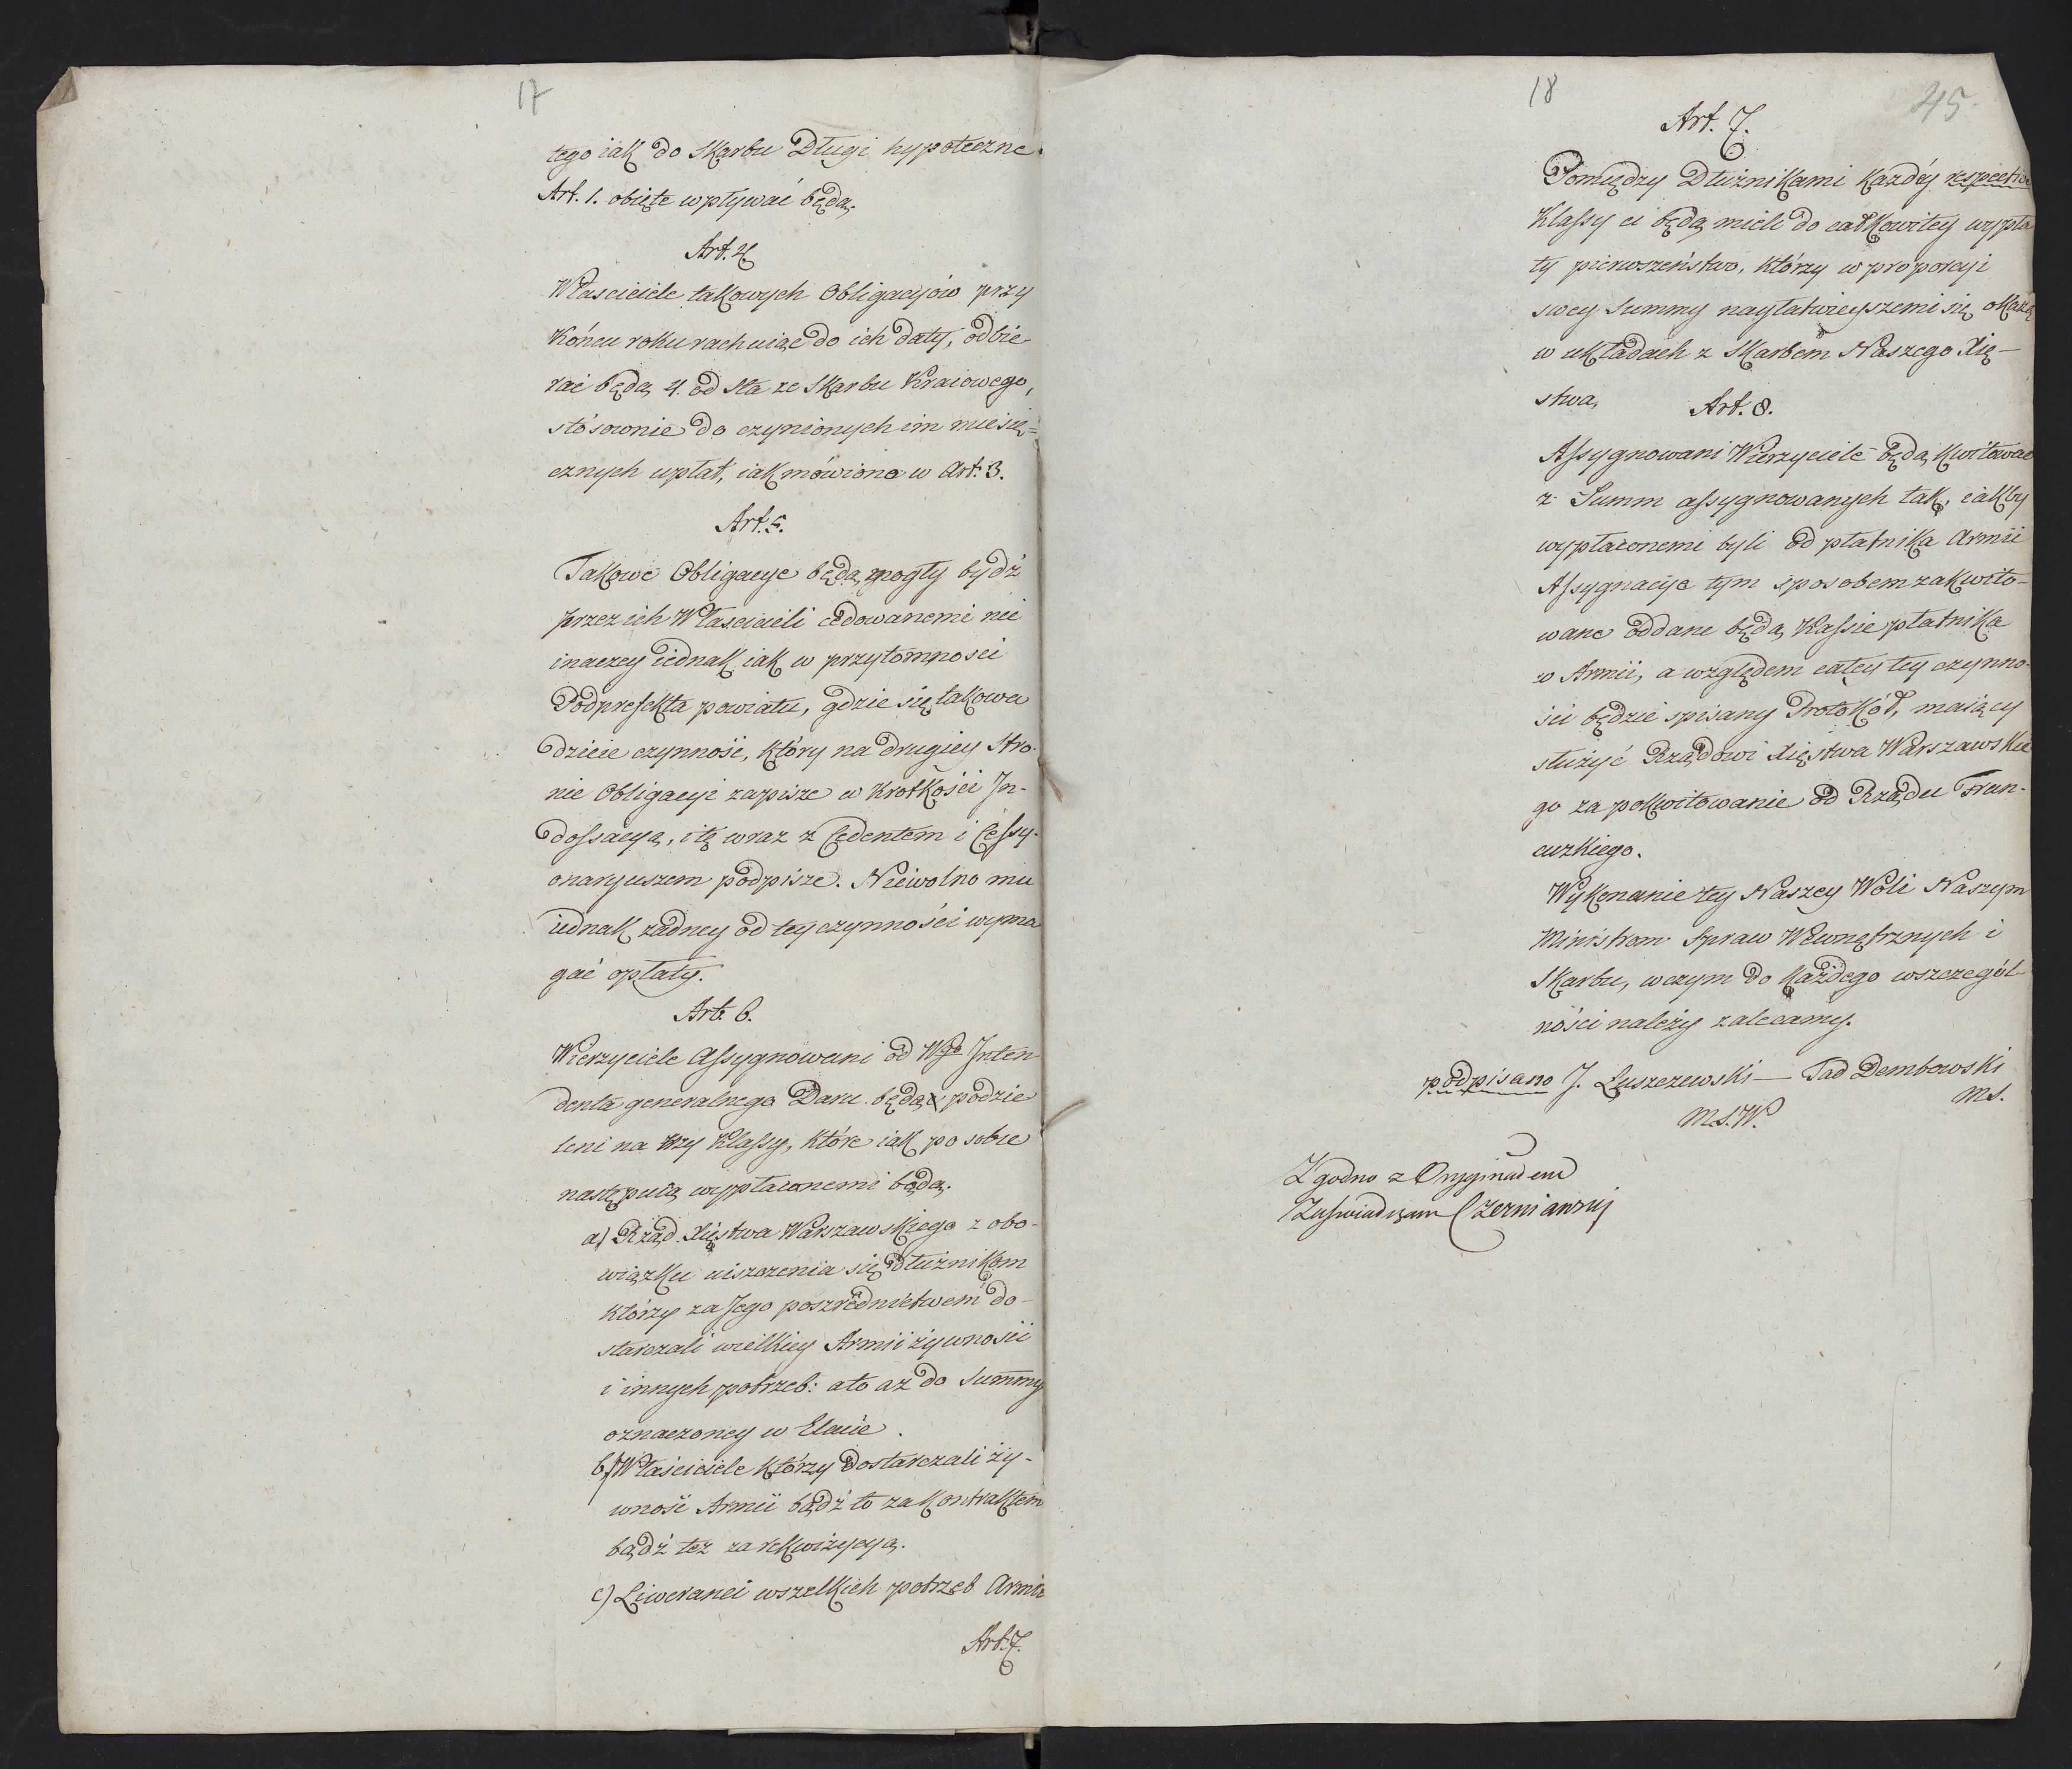 17
tego iak do Skarbu Długi hypoteczne
Art. 1. obięte wpływać będą.
Art. 4.
Właściciele takowych Obligacyiów przy
Końcu roku rachuiąc do ich daty, odbie-
rać będą 4. od sta ze Skarbu Kraiowego,
stósownie do czynionych im miesię=
cznych wpłat, iak mówiono w Art. 3.
Art. 5.
Takowe Obligacye będą mogły bydź
przez ich Właścicieli cedowanemi nie
inaczey iednak iak w przytomności
Podprefekta powiatu, gdzie się takowa
dzieie czynność, który na drugiey stro-
nie Obligacyi zapisze w krotkości In-
dossacyą, i tę wraz z Cedentem i Cessy-
onaryuszem podpisze. Niewolno mu
iednak żadney od tey czynności wyma
gać opłaty.
Art. 6.
Wierzyciele Assygnowani od Wgo Inten
denta generalnego Daru będą podzie
leni na trzy Klassy, które iak po sobie
następuią wypłaconemi będą.
a) Rząd Xięstwa Warszawskiego z obo-
wiązku uiszczenia się dłużnikom
którzy za Jego poszrednictwem do-
starczali wielkiey Armii żywności
i innych potrzeb: a to aż do summy
oznaczoney w Etacie.
b) Właściciele którzy dostarczali ży-
wność Armii bądź to za Kontraktem
bądź też za rekwizycyą.
c) Liweranci wszelkich potrzeb Armii
Art. 7.
18
45
Art. 7.
Pomiędzy Dłużnikami każdéy respective
Klassy ci będą mieli do całkowitey wypła
ty pierwszeństwo, którzy w proporcyi
swey Summy nayłatwieyszemi się okażą
w układach z Skarbem Naszego Xię-
stwa.
Art. 8.
Assygnowani Wierzyciele będą kwitować
z Summ assygnowanych tak, iakby
wypłaconemi byli od płatnika Armii
Assygnacye tym sposobem zakwito-
wane oddane będą Kassie płatnika
w Armii, a względem całey tey czynno-
ści będzie spisany Protokół, maiący
służyć Rządowi Xięstwa Warszawskie
go za pokwitowanie od Rządu Fran-
cuzkiego.
Wykonanie tey Naszey Woli Naszym
Ministrom Spraw Wewnętrznych i
Skarbu, w czym do każdego wszczegól
ności należy zalecamy.
podpisano J. Łuszczewski — Tad Dembowski
M.S.W. M.S.
Zgodno z Oryginałem
Zaświadczam Czerniawski